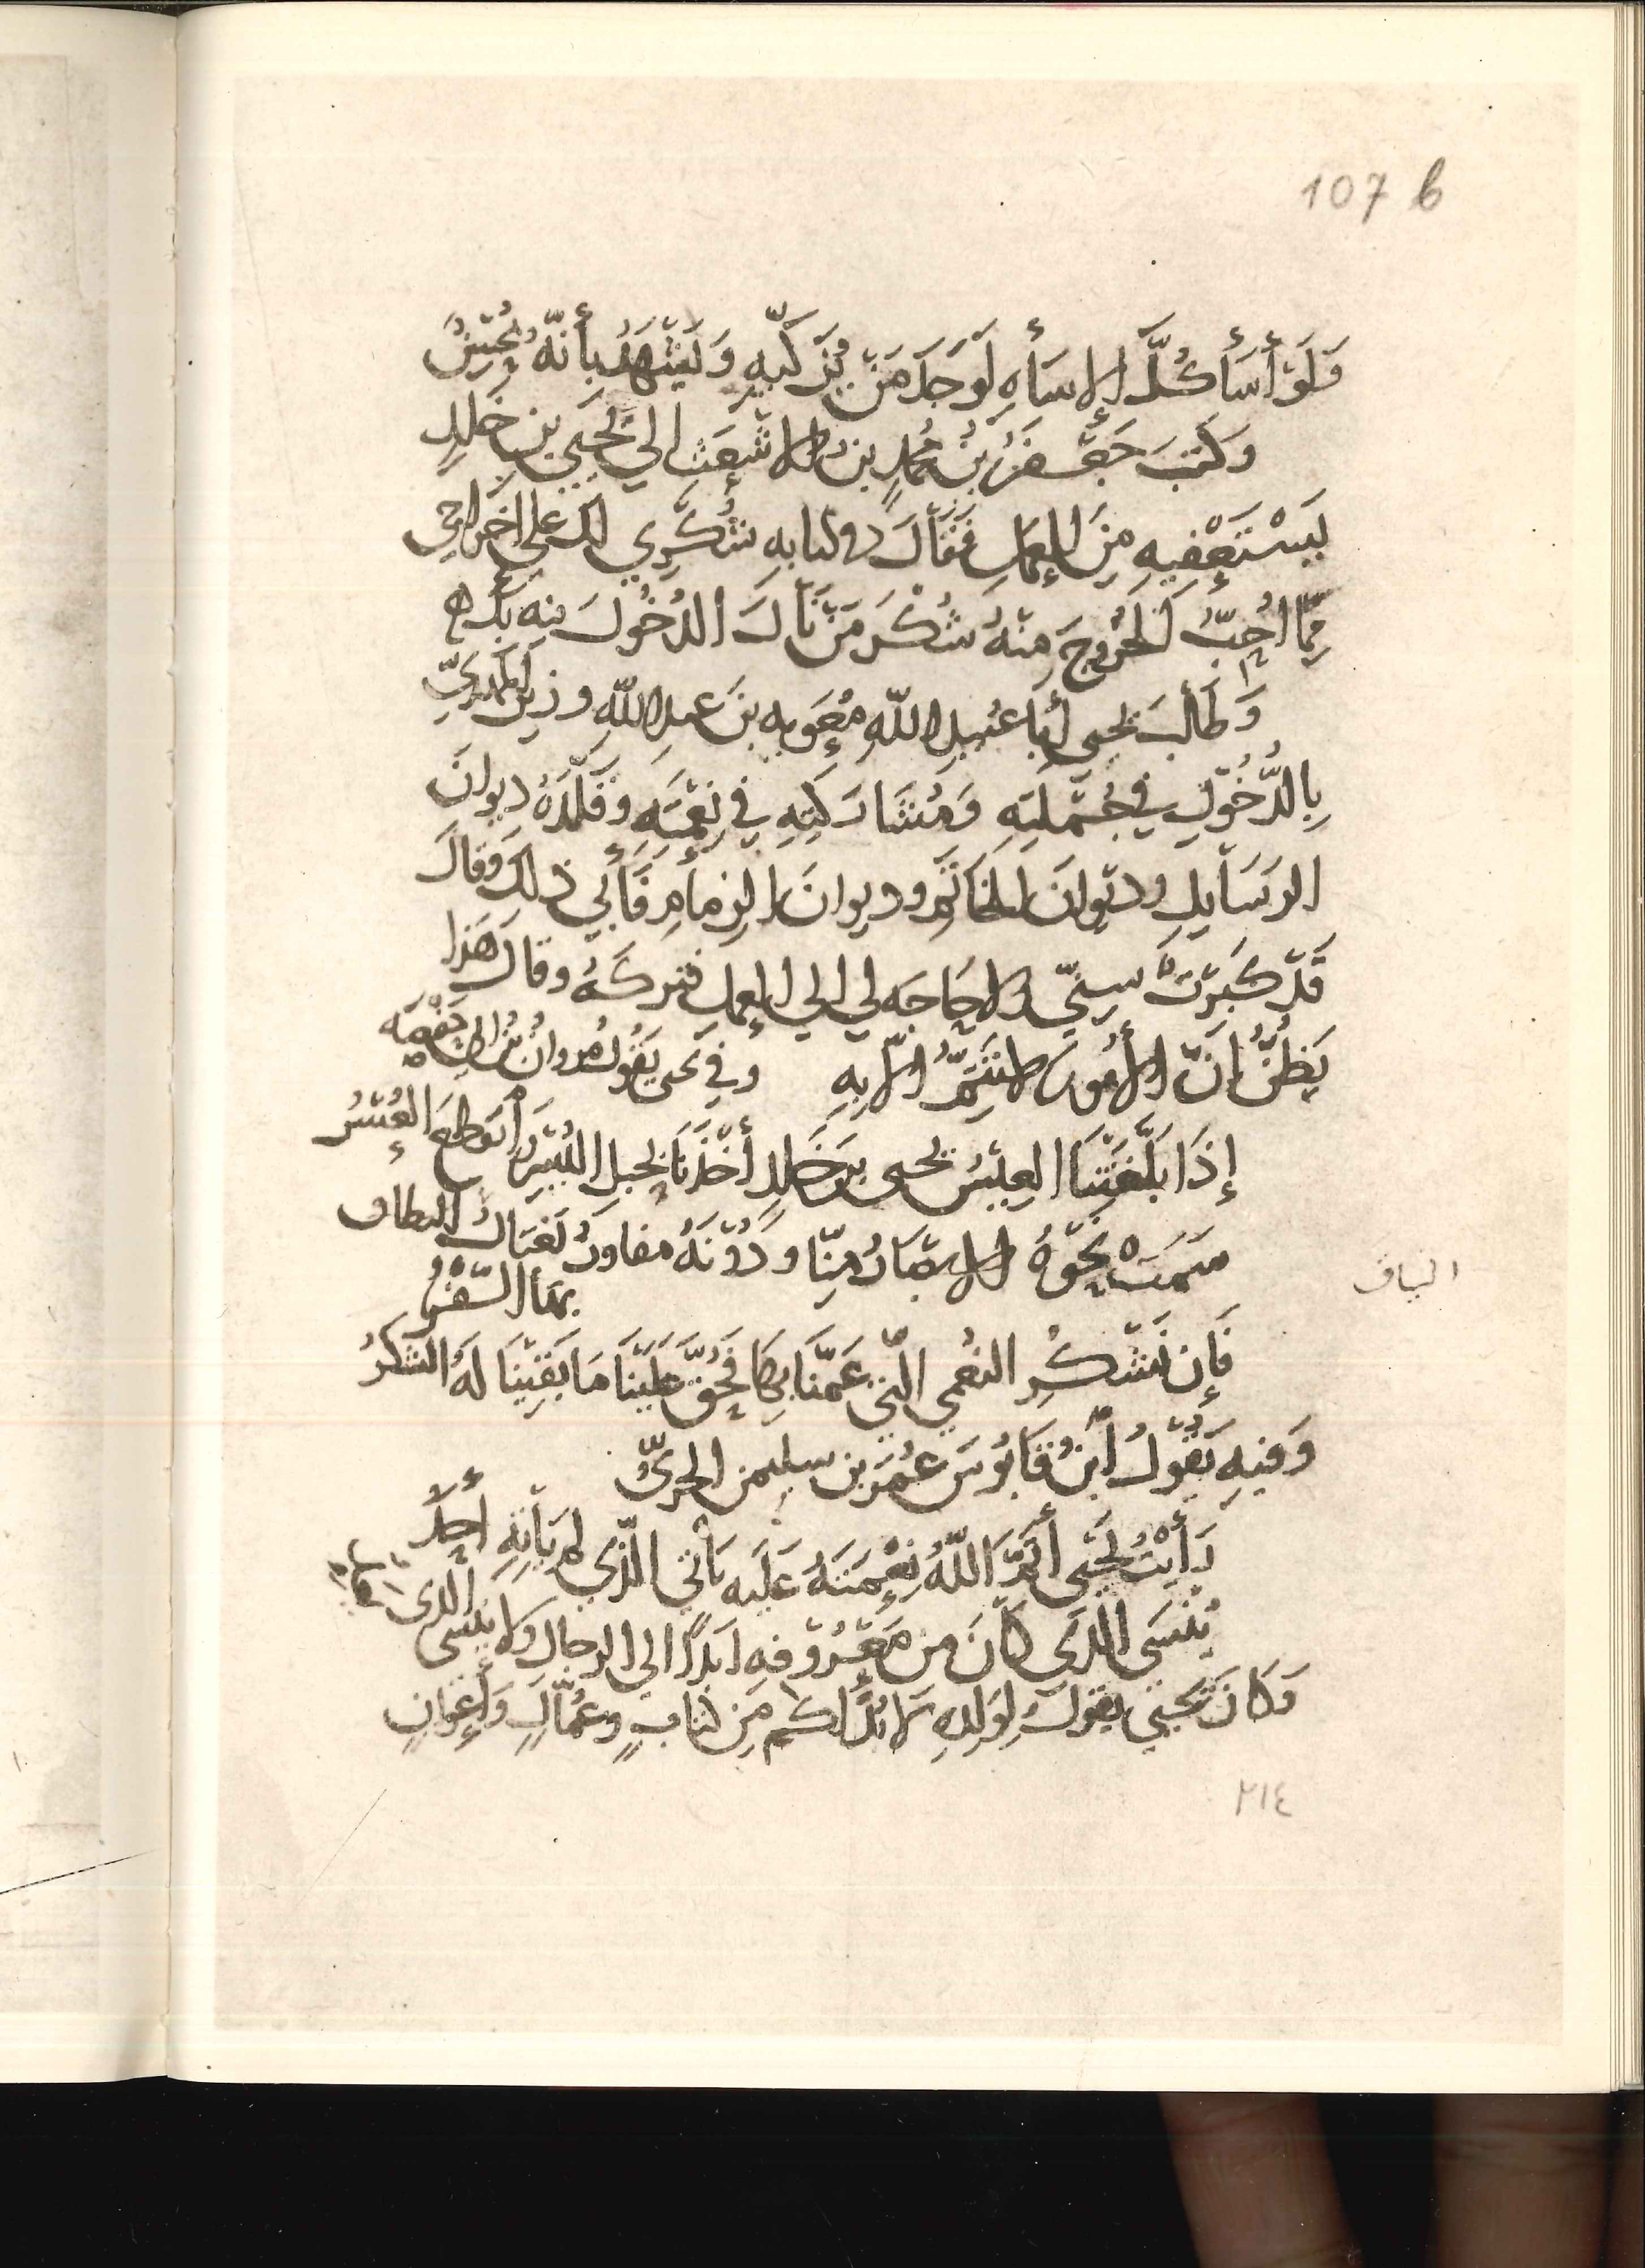 107 b
وَلَوْ أَسَأَ كُلَّ الإسَأهِ لَوَجَدَ مَنْ يُزَكّيهِ وَيَشْهَدُ بأنّهُ مُحْسِنٌ
وَكَتبَ جَعْفرُ بْنُ محُمدٍ بن الاشْعَثِ الي يَحْيي بن خَلدٍ
يَسْتَعْفِيهِ مِنَ العِمَلِ فَقَالَ في كتابهِ شُكْرِي لك علي اخراجي
مِمّا اُحِبُّ الخُرُوجَ مِنْهُ شُكْرَ مَنْ نَالَ الدُخُولَ فيه بك
وَطَالَبَ يحيى أبا عُبيدِ اللّهِ مُعَوِيه بنَ عبدِ اللّهِ وزيرَ المَهدِيّ
بِالدُّخُولِ في جُمْلَتِهِ وَمُشَارَكَتِهِ في نِعْمَتِهِ وقَلَّدَهُ ديوانَ
الرسَايلِ وديوانَ الخاتَمِ وديوانَ الزِمامِ فَأَبي ذلك وقالَ
قَدْ كَبَرَتْ سِنّي ولا حَاجَه لي الي العمل فتركَهُ وقالَ هَذا
يَظُنُّ انّ الأُمُورَ لا تَتِمُّ الّا بِهِ وفي يحيى يَقُولُ مروانُ بْنُ ابي حَفْصَه
إذَا بَلَّغَتْنَا العِيسُ يحيى بنَ خَلدٍ أخَذْنَا بحبلِ اليُسْرِ وانقَطَعَ العُسْرُ
سَمَتْ نَحْوَهُ الابصَارُ مِنّا ودُوْنَهُ مفاوزُ تَغتالُ النطاف
بها السَّفْرُ
النياق
فَإن نَشْكُرِ النعُمي الّتي عَمَّنَا بِهَا فَحَقٌّ عَلَيْنَا مَا بَقِيْنَا لَهُ الشكرُ
وَفيهِ يَقُولُ أبُو قَابُوسَ عُمَرُ بن سليمن الحِيرِيُّ
رَأيتُ يَحْيَى أتَمَّ اللّهُ نِعْمَتَهُ عَلَيه يَأتي الّذي لم يَأتِهِ أحدٌ
يُنْسَى الّذي كَانَ من مَعْرُوْفِهِ ابدًا الي الرجالِ ولا ينسى الّذي
وَكَانَ يَحيي يقولُ لِوَلدِهِ لا بُدَّ لكم مِن كتابٍ وعُمّالٍ وَأعوانٍ
٢١٤